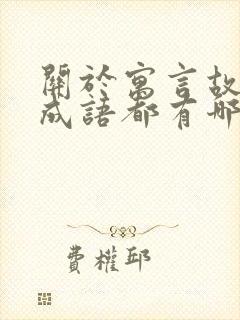 關於寓言故
成語都有哪
費權邱